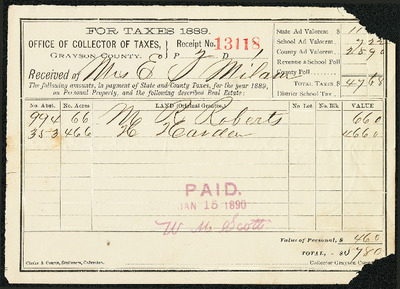 FOR TAXES 1889.
OFFICE OF COLLECTOR OF TAXES, Receipt No. 13118
GRAYSON COUNTY. P 2 D
Received of Mrs E J Milam
The following amounts, in payment of State and County Taxes, for the year 1889,
on Personal Property, and the following described Real Estate:
State Ad Valorem $ 11
School Ad Valorem 7 22
County Ad Valorem 28 90
Revenue & School Poll
County Poll
TOTAL TAXES $ 47 68
District School Tax
No. Abst. No. Acres LAND (Original Grantee.) No. Lot No. Blk VALUE
994 66 M E Roberts 660
353 466 H Harden 4660
PAID.
JAN 15 1890
W M Scott
Value of Personal, $ 460
TOTAL, $ 5780
Clarke & Courts, Stationers, Galveston.
Collector Grayson Coun